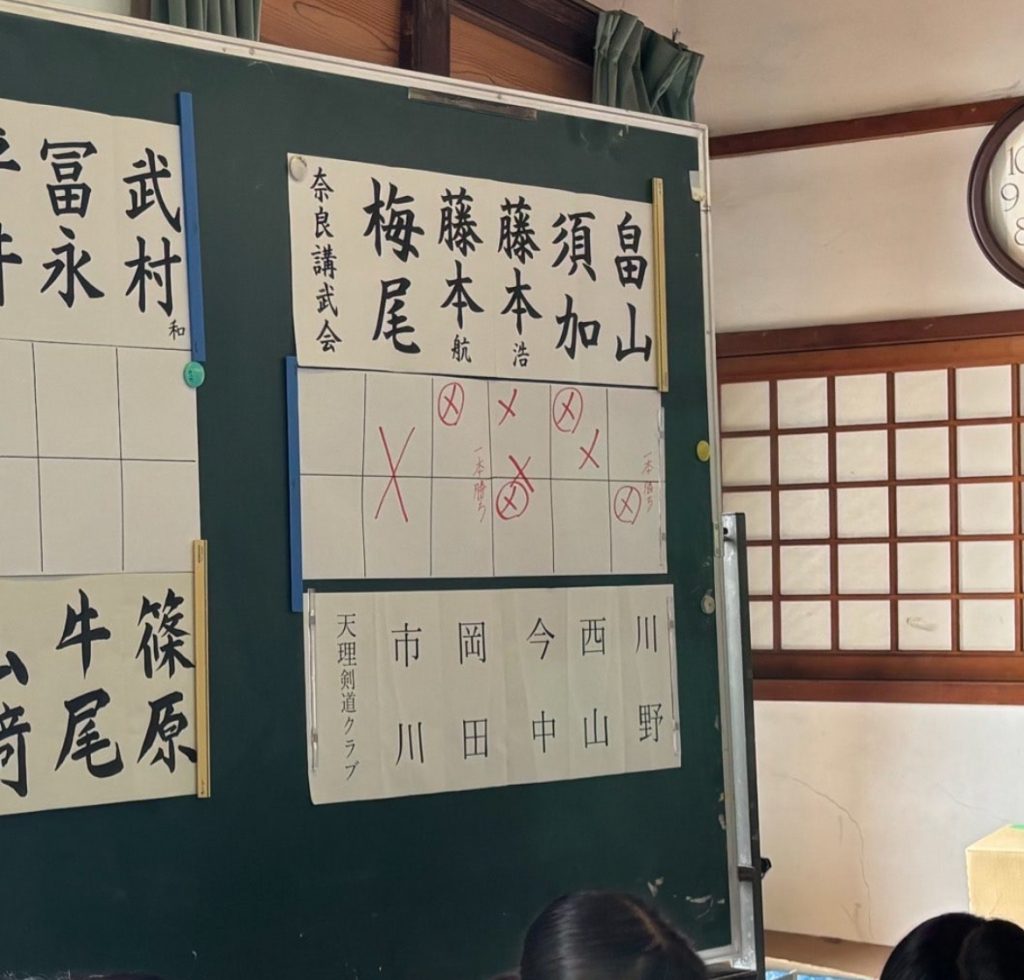 畠山
須加
藤本浩
藤本航
梅尾
奈良講武会
一本勝ち
一本勝ち
川野
西山
今中
岡田
市川
天理剣道クラブ
武村和
冨永
篠原
牛尾
10
9
8